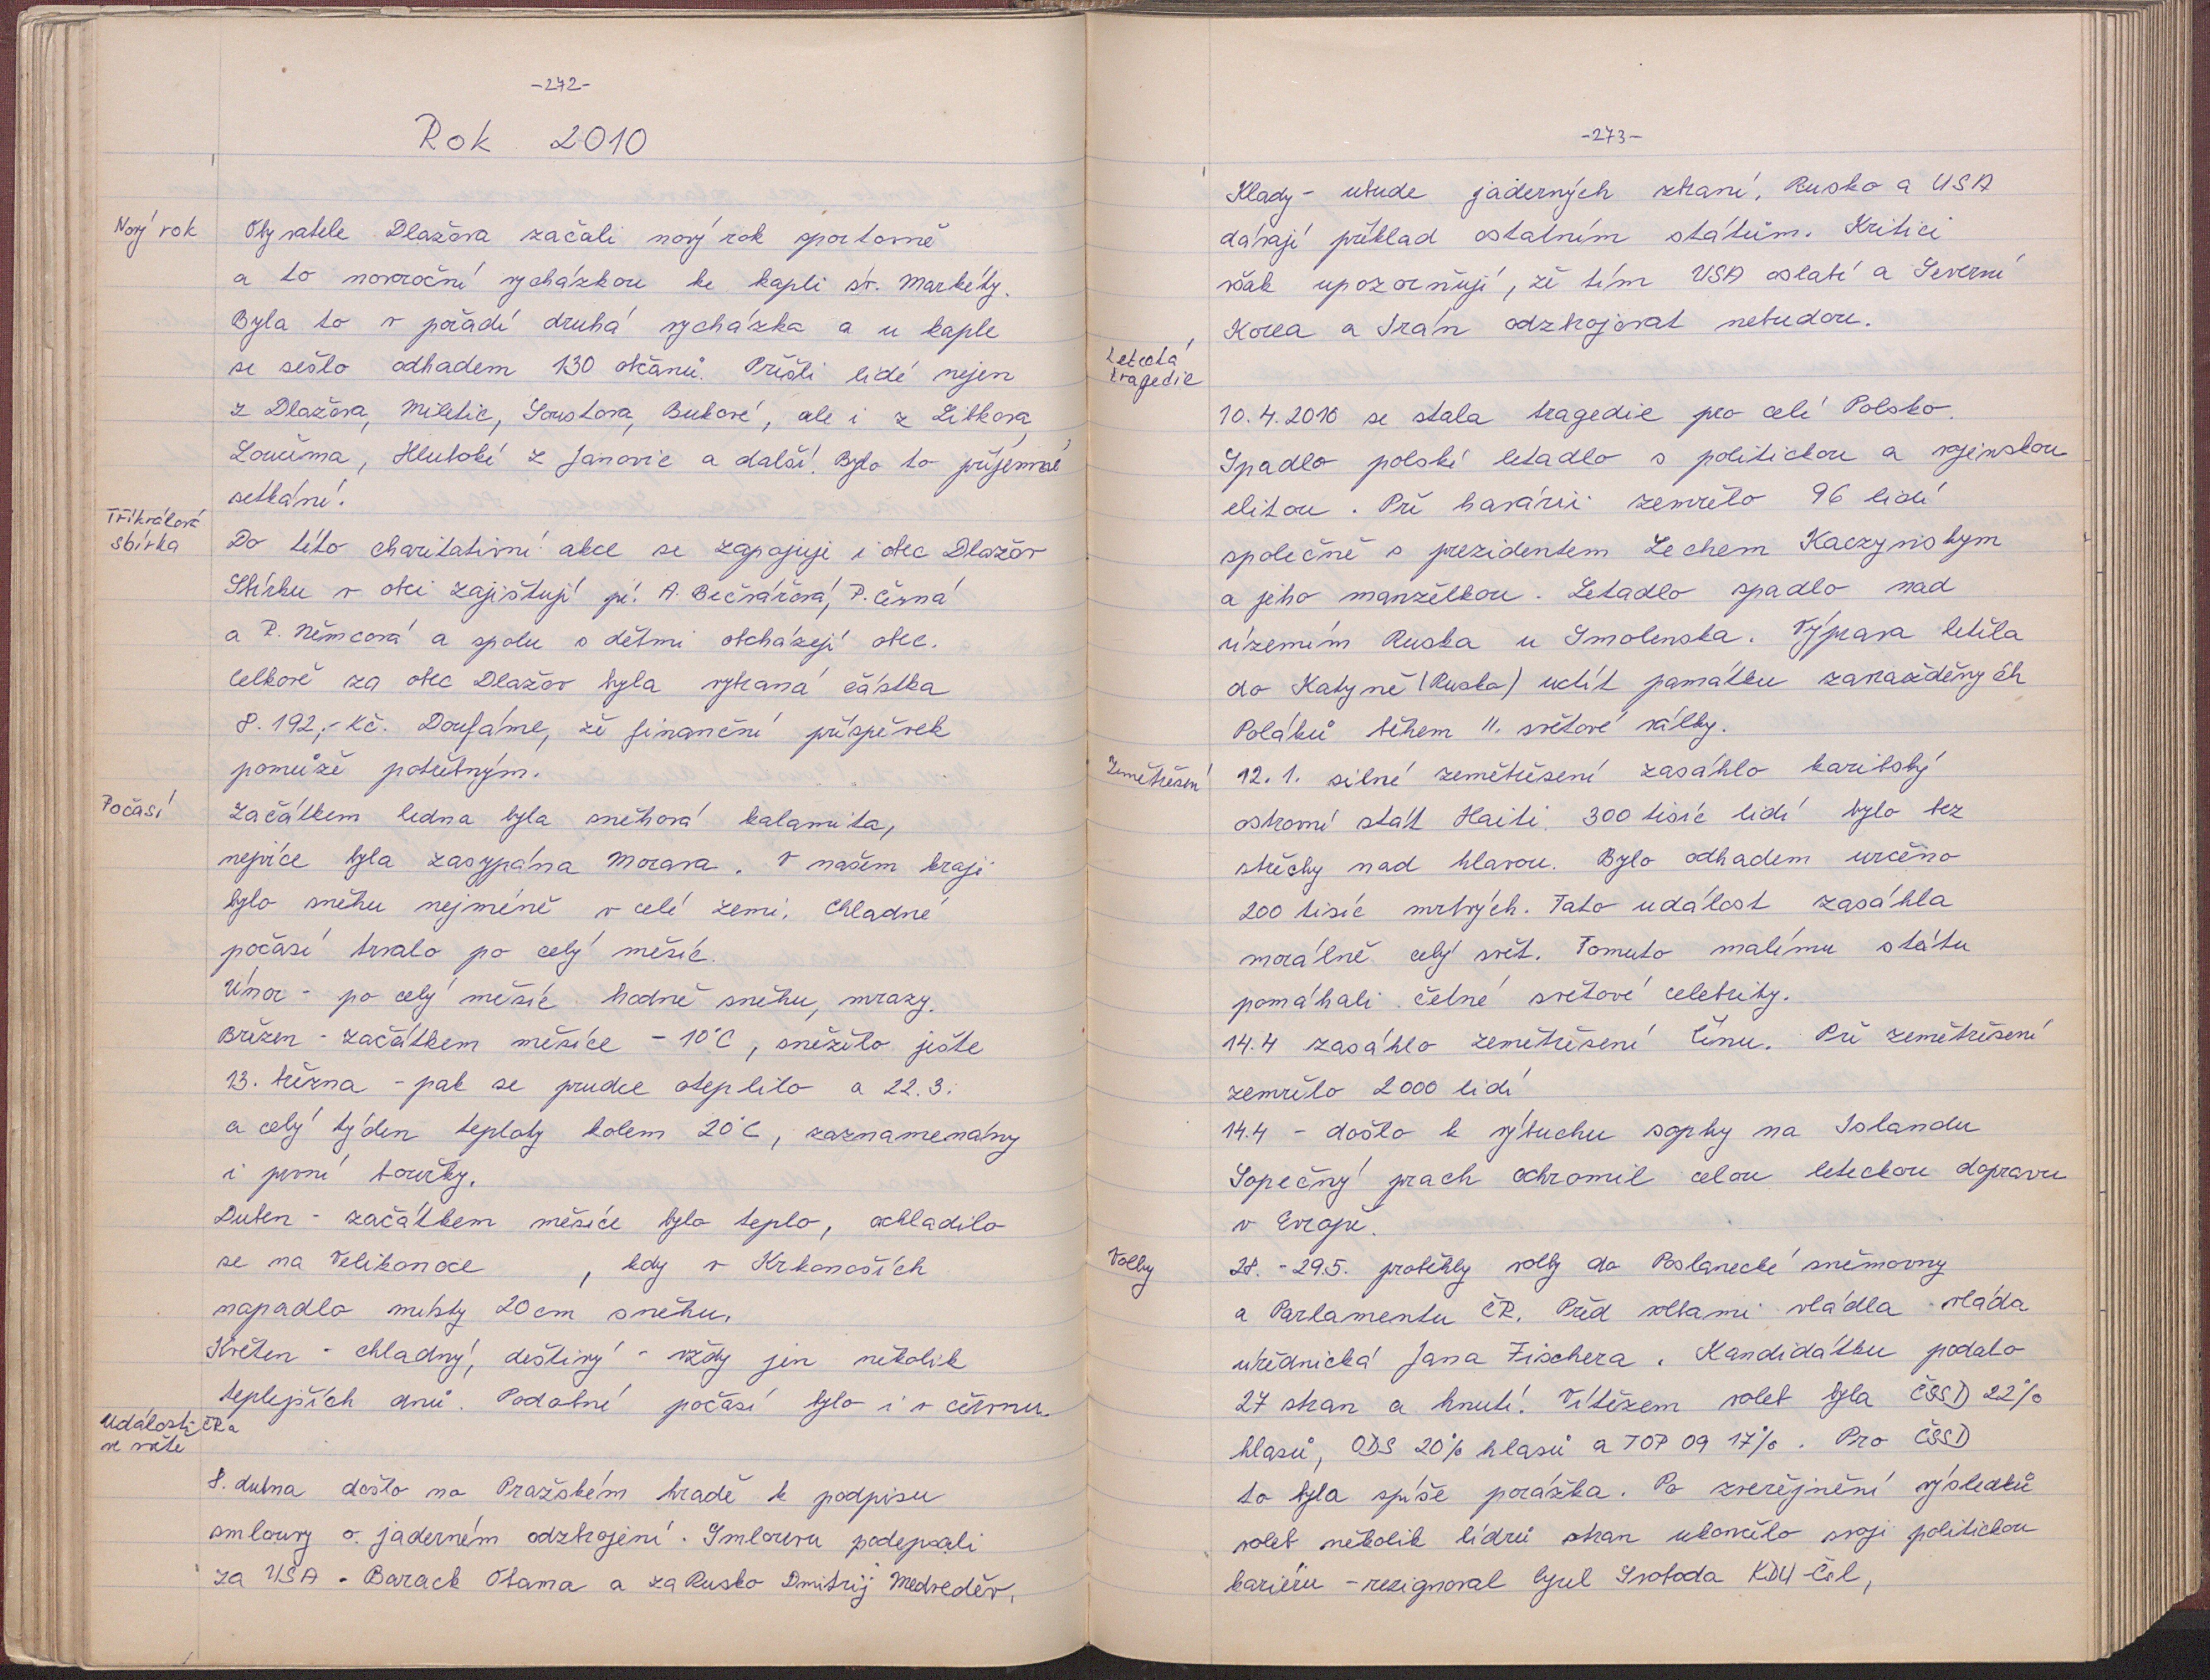 -272-
Rok 2010
Nový rok
Obyvatele Dlažova začali nový rok sportovně
a to novoroční vycházkou ke kapli sv. Markéty.
Byla to v pořadí druhá vycházka a u kaple
se sešlo odhadem 130 občanů. Přišli lidé nejen
z Dlažova, Miletic, Soustova, Bukové, ale i z Libkova,
Loučima, Hluboké z Janovic a další. Bylo to příjemné
setkání.
Tříkrálová
sbírka
Do této charitativní akce se zapojuje i obec Dlažov
Sbírku v obci zajištují pí. A. Bečvářová, P. Černá
a P. Němcová a spolu s dětmi obcházejí obec.
Celkově za obec Dlažov byla vybraná částka
8.192,- Kč. Doufáme, že finanční příspěvek
pomůže potřebným.
Počasí
Začátkem ledna byla sněhová kalamita,
nejvíce byla zasypána Morava. V našem kraji
bylo sněhu nejméně v celé zemi. Chladné
počasí trvalo po celý měsíc.
Únor - po celý měsíc hodně sněhu, mrazy.
Březen - začátkem měsíce - 10°C, sněžilo ješte
13. března - pak se prudce oteplilo a 22.3.
a celý týden teploty kolem 20°C, zaznamenány
i první bouřky.
Duben - začátkem měsíce bylo teplo, ochladilo
se na Velikonoce , kdy v Krkonoších
napadlo místy 20 cm sněhu.
Květen - chladný, deštivý - vždy jen několik
teplejších dnů. Podobné počasí bylo i v červnu.
Události ČR a
ve světe
8. dubna došlo na Pražském hradě k podpisu
smlouvy o jaderném odzbrojení. Smlouvu podepsali
za USA - Barack Obama a za Rusko Dmitrij Medveděv.
-273-
Klady - ubude jaderných zbraní. Rusko a USA
dávají příklad ostatním státům. Kritici
však upozorňují, že tím USA oslabí a Severní
Korea a Irán odzbrojovat nebudou.
Letecká
tragedie
10.4.2010 se stala tragedie pro celé Polsko.
Spadlo polské letadlo s politickou a vojenskou
elitou. Při havárii zemřelo 96 lidí
společně s prezidentem Lechem Kaczynskym
a jeho manželkou. Letadlo spadlo nad
územím Ruska u Smolenska. Výprava letěla
do Katyně (Rusko) uctít památku zavražděných
Poláků během II. světové války.
Zemětřesení
12.1. silné zemětřesení zasáhlo karibský
ostrovní stát Haiti. 300 tisíc lidí bylo bez
střechy nad hlavou. Bylo odhadem určeno
200 tisíc mrtvých. Tato událost zasáhla
morálně celý svět. Tomuto malému státu
pomáhali četné světové celebrity.
14.4 zasáhlo zemětřesení Čínu. Při zemětřesení
zemřelo 2000 lidí
14.4 - došlo k výbuchu sopky na Islandu
Sopečný prach ochromil celou leteckou dopravu
v Evropě.
Volby
28. - 29.5. proběhly volby do Poslanecké sněmovny
a Parlamentu ČR. Před volbami vládla vláda
úřednická Jana Fischera. Kandidátku podalo
27 stran a hnutí. Vítězem voleb byla ČSSD 22%
hlasů, ODS 20% hlasů a TOP 09 17%. Pro ČSSD
to byla spíše porážka. Po zveřejnění výsledků
voleb několik lídrů stran ukončilo svoji politickou
kariéru - rezignoval Cyril Svoboda KDU-ČSL,